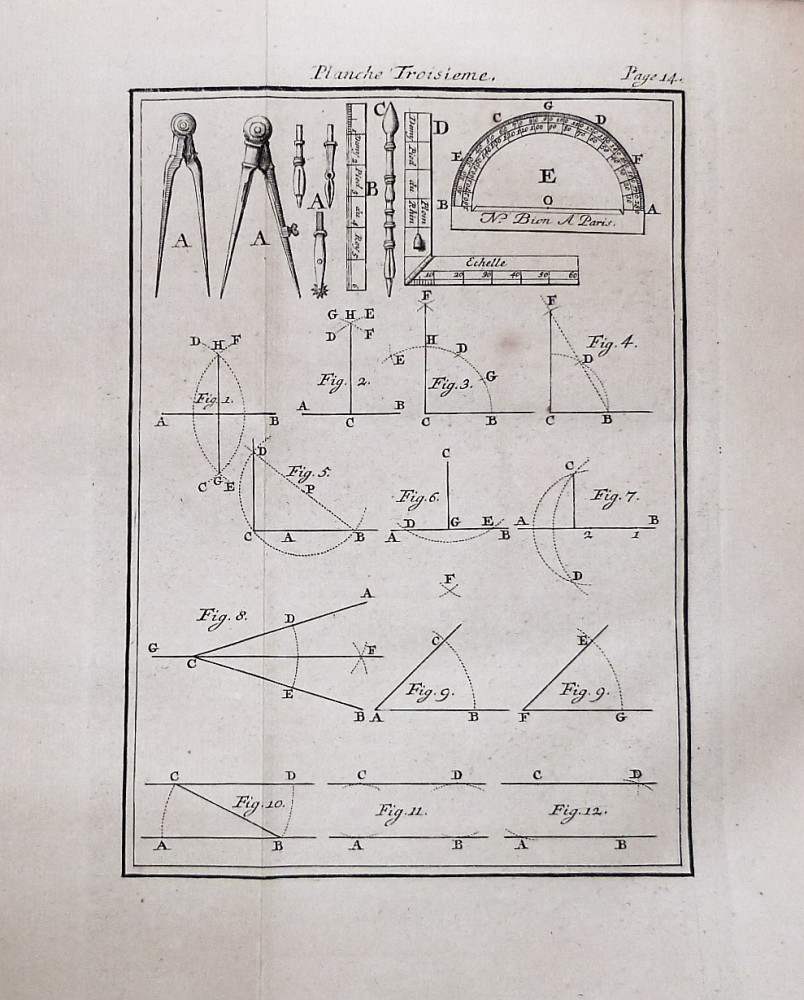 Planche Troisieme.
Page 14.
A
A
A
B
Demy Pied du Roy
C
D
Demy Pied du Rhin
Plom
Echelle
10 20 30 40 50 60
E
B E C G D F A
O
N. Bion A Paris.
D H F
Fig. 1.
A B
C G E
G H E
D F
Fig. 2.
A C B
F
E H D
G
Fig. 3.
C B
F
Fig. 4.
D
C B
D
Fig. 5.
P
C A B
C
Fig. 6.
A D G E B
F
C
Fig. 7.
A 2 1 B
D
Fig. 8.
A
D
G C F
E
B
C
Fig. 9.
A B
E
Fig. 9.
F G
C D
Fig. 10.
A B
C D
Fig. 11.
A B
C D
Fig. 12.
A B